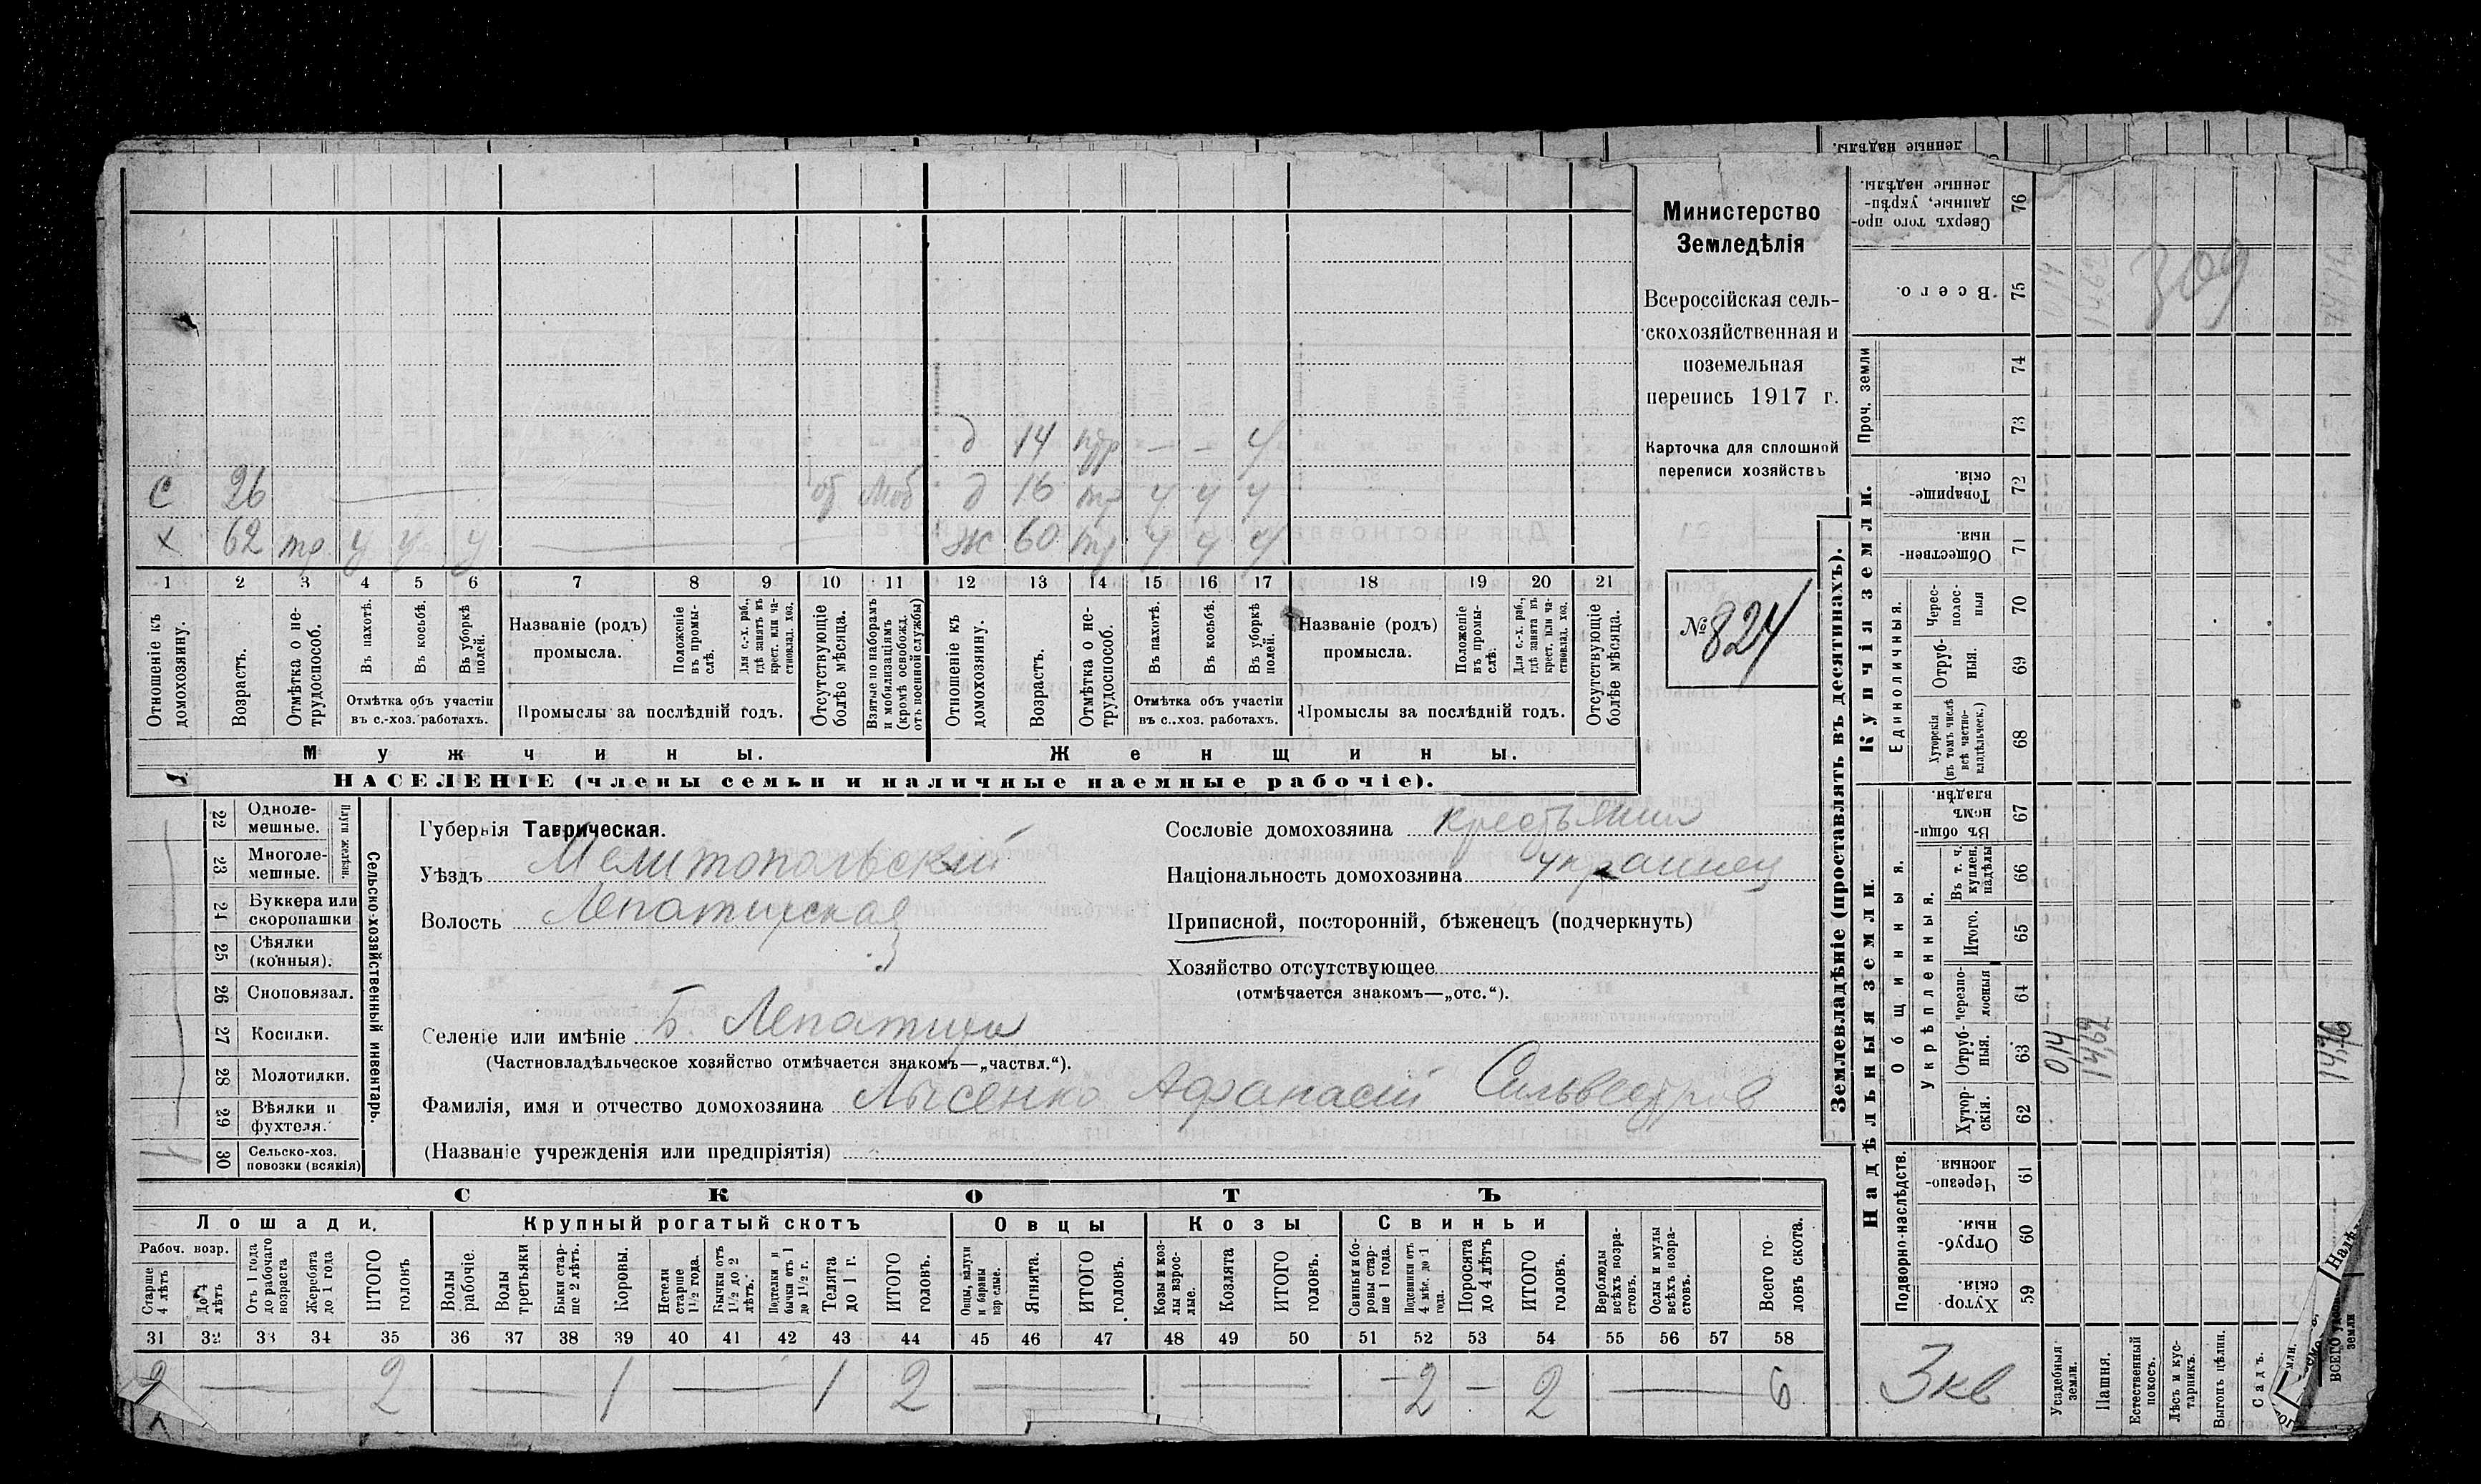 денные надѣлы.
С 26 от Моб
Х 62 тр у у у
д 14 пдр — — у
д 16 тр у у у
Ж 60 тр у у у
1 2 3 4 5 6 7 8 9 10 11 12 13 14 15 16 17 18 19 20 21
Отношеніе къ домохозяину.
Возрастъ.
Отмѣтка о нетрудоспособ.
Въ пахотѣ.
Въ косьбѣ.
Въ уборкѣ полей.
Отмѣтка объ участіи
въ с.-хоз. работахъ.
Названіе (родъ)
промысла.
Положеніе въ промыслѣ.
Для с.-х. раб., гдѣ занятъ въ крест. или частновлад. хоз.
Промыслы за послѣдній годъ.
Отсутствующіе болѣе мѣсяца.
Взятые по наборамъ и мобилизаціямъ (кромѣ освобожд. отъ военной службы)
Отношеніе къ домохозяину.
Возрастъ.
Отмѣтка о нетрудоспособ.
Въ пахотѣ.
Въ косьбѣ.
Въ уборкѣ полей.
Отмѣтка объ участіи
въ с.-хоз. работахъ.
Названіе (родъ)
промысла.
Положеніе въ промыслѣ.
Для с.-х. раб., гдѣ занята въ крест. или частновлад. хоз.
Промыслы за послѣдній годъ.
Отсутствующіе болѣе мѣсяца.
Мужчины.
Женщины.
НАСЕЛЕНІЕ (члены семьи и наличные наемные рабочіе).
Министерство
Земледѣлія
Всероссійская сель-
скохозяйственная и
поземельная
перепись 1917 г.
Карточка для сплошной
переписи хозяйствъ
№ 824
22 Одноле-
мешные.
23 Многоле-
мешные.
Плуги желѣзн.
24 Буккера или
скоропашки
25 Сѣялки
(конныя).
26 Сноповязал.
27 Косилки.
28 Молотилки.
29 Вѣялки и
фухтеля.
30 Сельско-хоз.
повозки (всякія)
Сельско-хозяйственный инвентарь.
Губернія Таврическая.
Уѣздъ Мелитопольский
Волость Лепатихская
Селеніе или имѣніе Б. Лепатиха
(Частновладѣльческое хозяйство отмѣчается знакомъ—„частвл.“).
Фамилія, имя и отчество домохозяина Лысенко Афанасій Сильвестров
(Названіе учрежденія или предпріятія)
Сословіе домохозяина крестьянин
Національность домохозяина украинец
Приписной, посторонній, бѣженецъ (подчеркнуть)
Хозяйство отсутствующее
(отмѣчается знакомъ—„отс.“).
СКОТЪ
Лошади.
Крупный рогатый скотъ
Овцы
Козы
Свиньи
Рабоч. возр.
Старше 4 лѣтъ
До 4 лѣтъ
Отъ 1 года до рабочаго возраста
Жеребята до 1 года
ИТОГО головъ
Волы рабочіе.
Волы третьяки
Быки старше 2 лѣтъ.
Коровы.
Нетели старше 1½ года.
Бычки отъ 1½ до 2 лѣтъ.
Подтелки и бычки отъ 1 до 1½ г.
Телята до 1 г.
ИТОГО головъ.
Овцы, валухи и бараны взрослые.
Ягнята.
ИТОГО головъ.
Козы и козлы взрослые.
Козлята
ИТОГО головъ.
Свиньи и боровы старше 1 года.
Подсвинки отъ 4 мѣс. до 1 года.
Поросята до 4 лѣтъ
ИТОГО головъ.
Верблюды всѣхъ возрастовъ.
Ослы и мулы всѣхъ возрастовъ.
Всего головъ скота.
31 32 33 34 35 36 37 38 39 40 41 42 43 44 45 46 47 48 49 50 51 52 53 54 55 56 57 58
2 — 2 — 1 — 1 2 — — - 2 - 2 — 6
Землевладѣніе (проставлять въ десятинахъ).
Надѣльныя земли.
Купчія земли.
Проч. земли
Подворно-наслѣдств.
Общинныя.
Укрѣпленныя.
Единоличныя.
Сверхъ того проданные, укрѣпленные надѣлы. 76
Всего. 75
74
73
Товарищескія. 72
Общественныя. 71
Чересполосныя 70
Отрубныя. 69
Хуторскія (въ томъ числѣ всѣ частновладѣльческ.) 68
Въ общинномъ владѣн. 67
Въ т. ч. куплен. надѣлы 66
Итого. 65
Черезполосныя 64
Отрубныя. 63
Хуторскія. 62
Черезполосныя. 61
Отрубныя. 60
Хуторскія. 59
0,14
14,62
309
0,14
14,62
14,76
3кв
Усадебныя земли.
Пашня.
Естественный покосъ.
Лѣсъ и кустарникъ.
Выгонъ цѣлин.
Садъ.